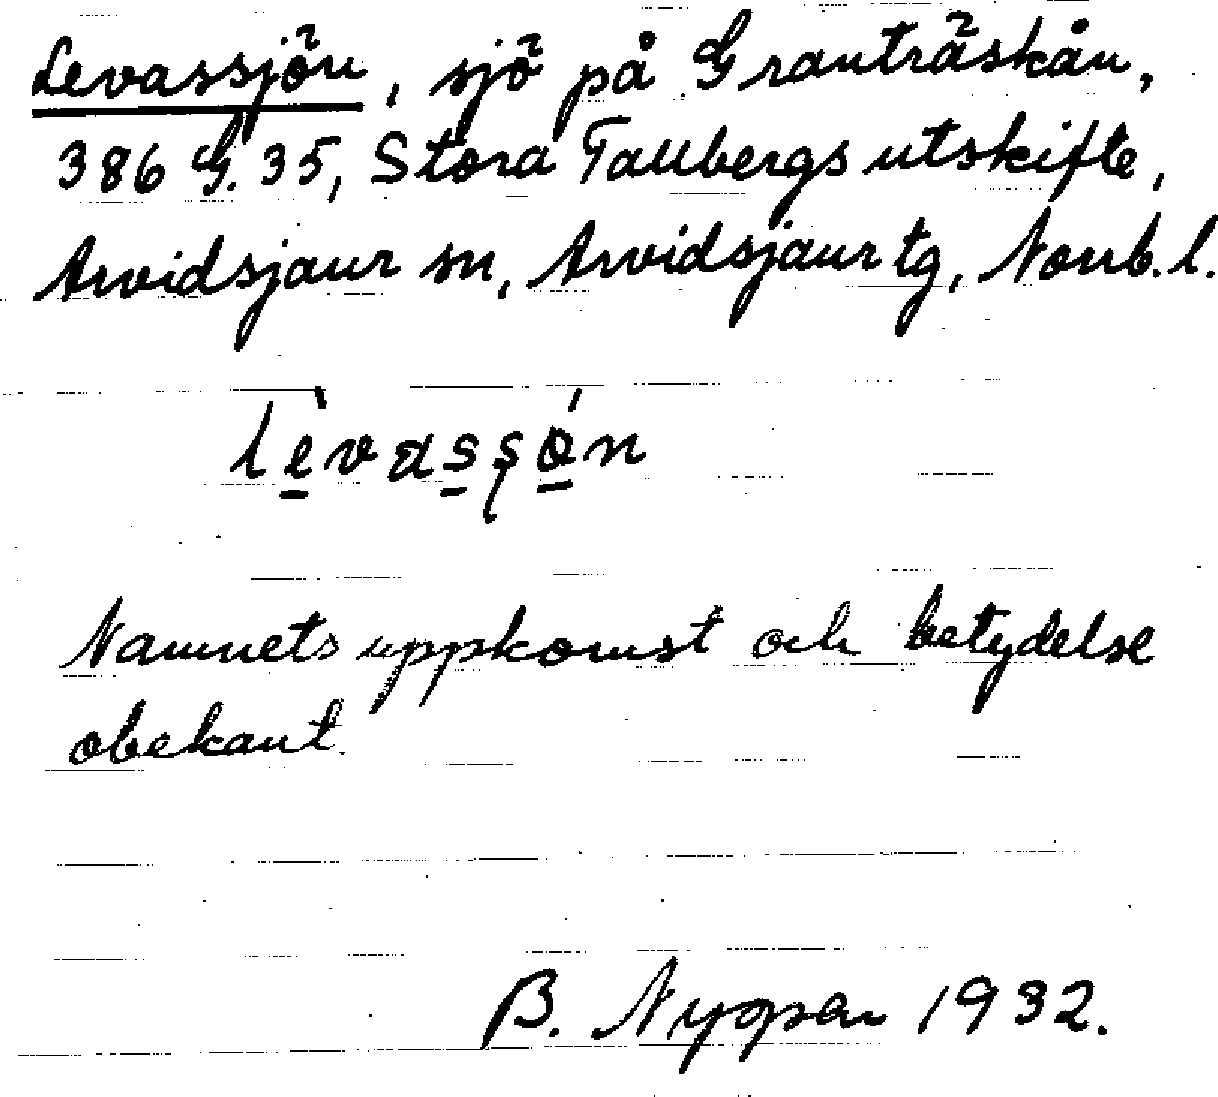 Levassjön, sjö på Granträskån,
386 G. 35, Stora Tallbergs utskifte,
Arvidsjaur sn, Arvidsjaur tg, Norrb. l.
lèvassǿn
Namnets uppkomst och betydelse
obekant.
B. 1932.